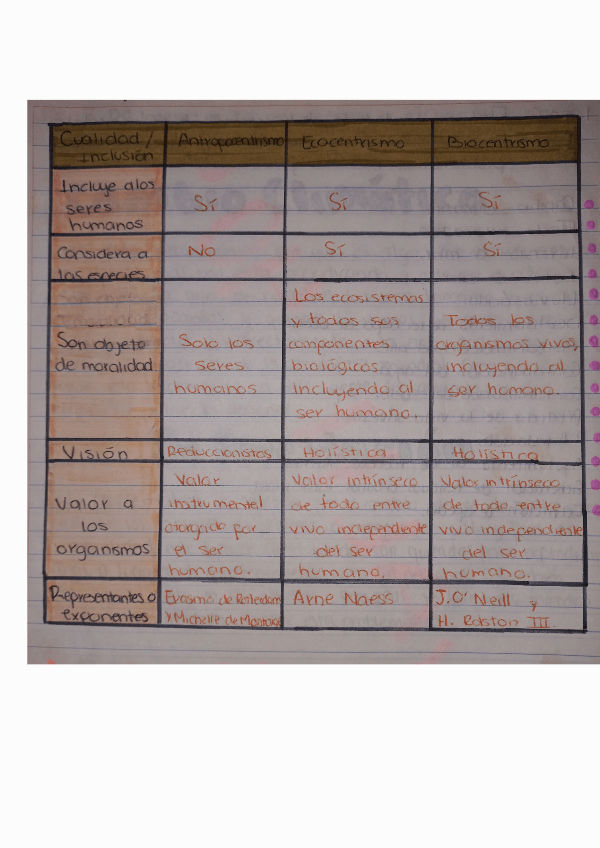 Cualidad /
Inclusión
Antropocentrismo
Ecocentrismo
Biocentrismo
Incluye a los
seres
humanos
Sí
Sí
Sí
Considera a
las especies
No
Sí
Sí
Son objeto
de moralidad
Solo los
seres
humanos
Los ecosistemas
y todos sus
componentes
biológicos
incluyendo al
ser humano.
Todos los
organismos vivos,
incluyendo al
ser humano.
Visión
Reduccionistas
Holística
Holística
Valor a
los
organismos
Valor
instrumental
otorgado por
el ser
humano.
Valor intrínseco
de todo entre
vivo independiente
del ser
humano.
Valor intrínseco
de todo entre
vivo independiente
del ser
humano.
Representantes o
exponentes
Erasmo de Roterdam
y Michelle de Montaige
Arne Naess
J.O' Neill y
H. Rolston III.